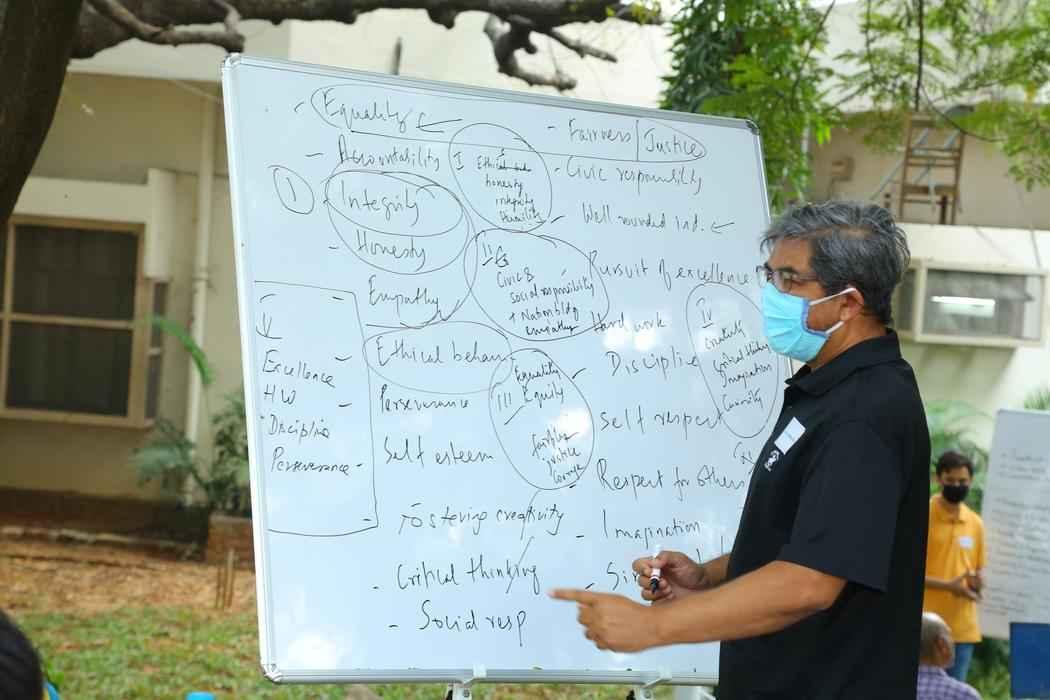 - Equality ←
- Fairness Justice
- Accountability
I Ethical
honesty
integrity
- Civic responsibility
1
Integrity
- Well rounded ind. ←
- Honesty
II
Civic &
social responsibility
+ Nation bldg
empathy
Pursuit of excellence
Empathy
Hard work
IV
Creativity
Critical thinking
Imagination
Curiosity
Ethical behav
- Discipline
III
Equality
Equity
justice
Courage
Excellence -
HW -
Discipline
Perseverance -
Perseverance
Self respect
Self esteem
Respect for others
Fostering creativity
- Imagination
- Critical thinking
- Social resp